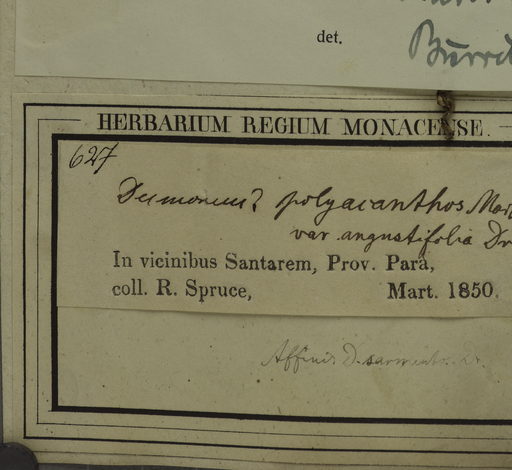 det.
HERBARIUM REGIUM MONACENSE.
627
polyacanthos Mart
var angustifolia Dr
In vicinibus Santarem, Prov. Parà,
coll. R. Spruce, Mart. 1850.
Affinis D. sarment. Dr.